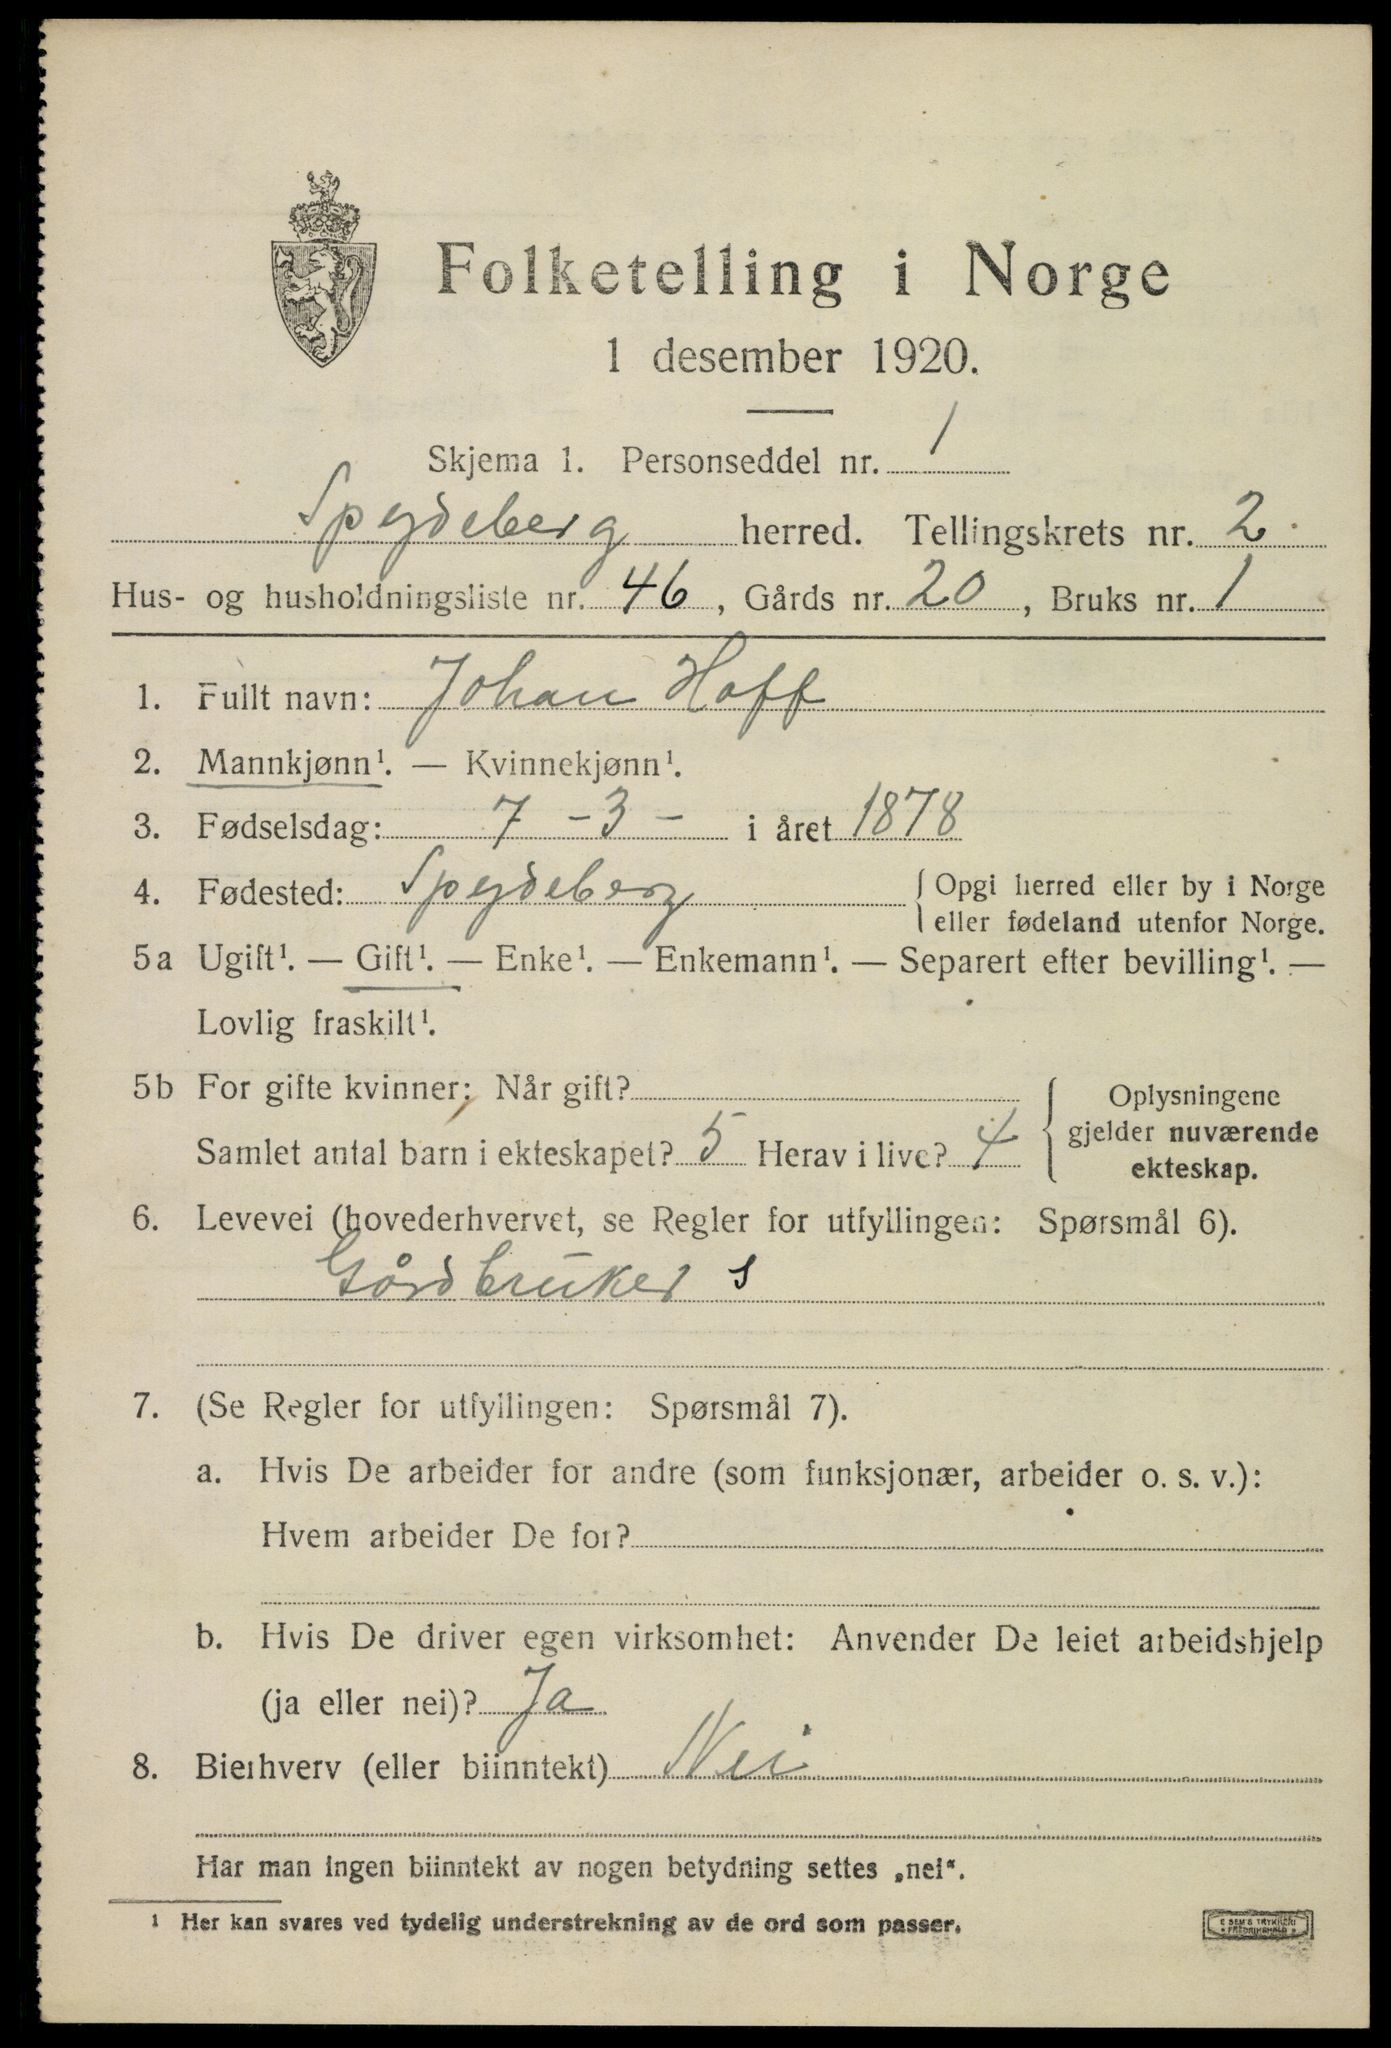 Folketelling i Norge
1 desember 1920.
Skjema 1. Personseddel nr. 1
Spydeberg herred. Tellingskrets nr. 2
Hus- og husholdningsliste nr. 46, Gårds nr. 20, Bruks nr. 1
1. Fullt navn: Johan Hoff
2. Mannkjønn¹. — Kvinnekjønn¹.
3. Fødselsdag: 7 - 3 - i året 1878
4. Fødested: Spydeberg { Opgi herred eller by i Norge
eller fødeland utenfor Norge.
5a Ugift¹. — Gift¹. — Enke¹. — Enkemann¹. — Separert efter bevilling¹. —
Lovlig fraskilt¹.
5b For gifte kvinner: Når gift?
Samlet antal barn i ekteskapet? 5 Herav i live? 4
Oplysningene
gjelder nuværende
ekteskap.
6. Levevei (hovederhvervet, se Regler for utfyllingen: Spørsmål 6).
Gårdbruker s
7. (Se Regler for utfyllingen: Spørsmål 7).
a. Hvis De arbeider for andre (som funksjonær, arbeider o. s. v.):
Hvem arbeider De for?
b. Hvis De driver egen virksomhet: Anvender De leiet arbeidshjelp
(ja eller nei)? Ja
8. Bierhverv (eller biinntekt) Nei
Har man ingen biinntekt av nogen betydning settes „nei“.
1 Her kan svares ved tydelig understrekning av de ord som passer.
E SEM'S TRYKKERI
FREDRIKSHALD